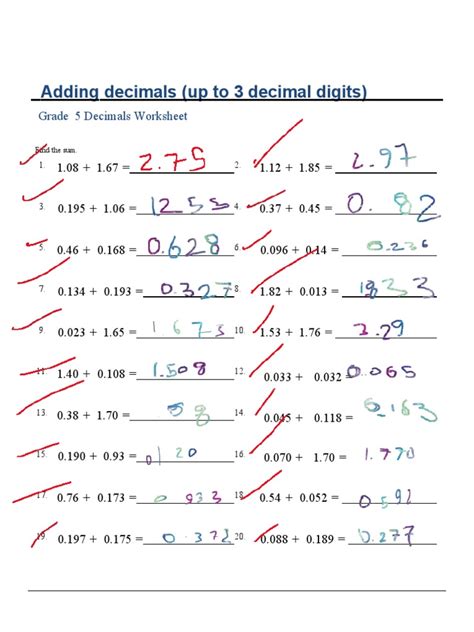 Adding decimals (up to 3 decimal digits)
Grade 5 Decimals Worksheet
Find the sum.
1. 1.08 + 1.67 = 2.75 2. 1.12 + 1.85 = 2.97
3. 0.195 + 1.06 = 1255 4. 0.37 + 0.45 = 0.82
5. 0.46 + 0.168 = 0.628 6. 0.096 + 0.14 = 0.236
7. 0.134 + 0.193 = 0.327 8. 1.82 + 0.013 = 1833
9. 0.023 + 1.65 = 1673 10. 1.53 + 1.76 = 3.29
11. 1.40 + 0.108 = 1.508 12. 0.033 + 0.032 = 0.065
13. 0.38 + 1.70 = 14. 0.045 + 0.118 = 0.163
15. 0.190 + 0.93 = 16. 0.070 + 1.70 = 1.770
17. 0.76 + 0.173 = 0 933 18. 0.54 + 0.052 = 0.592
19. 0.197 + 0.175 = 0.372 20. 0.088 + 0.189 = 0.277